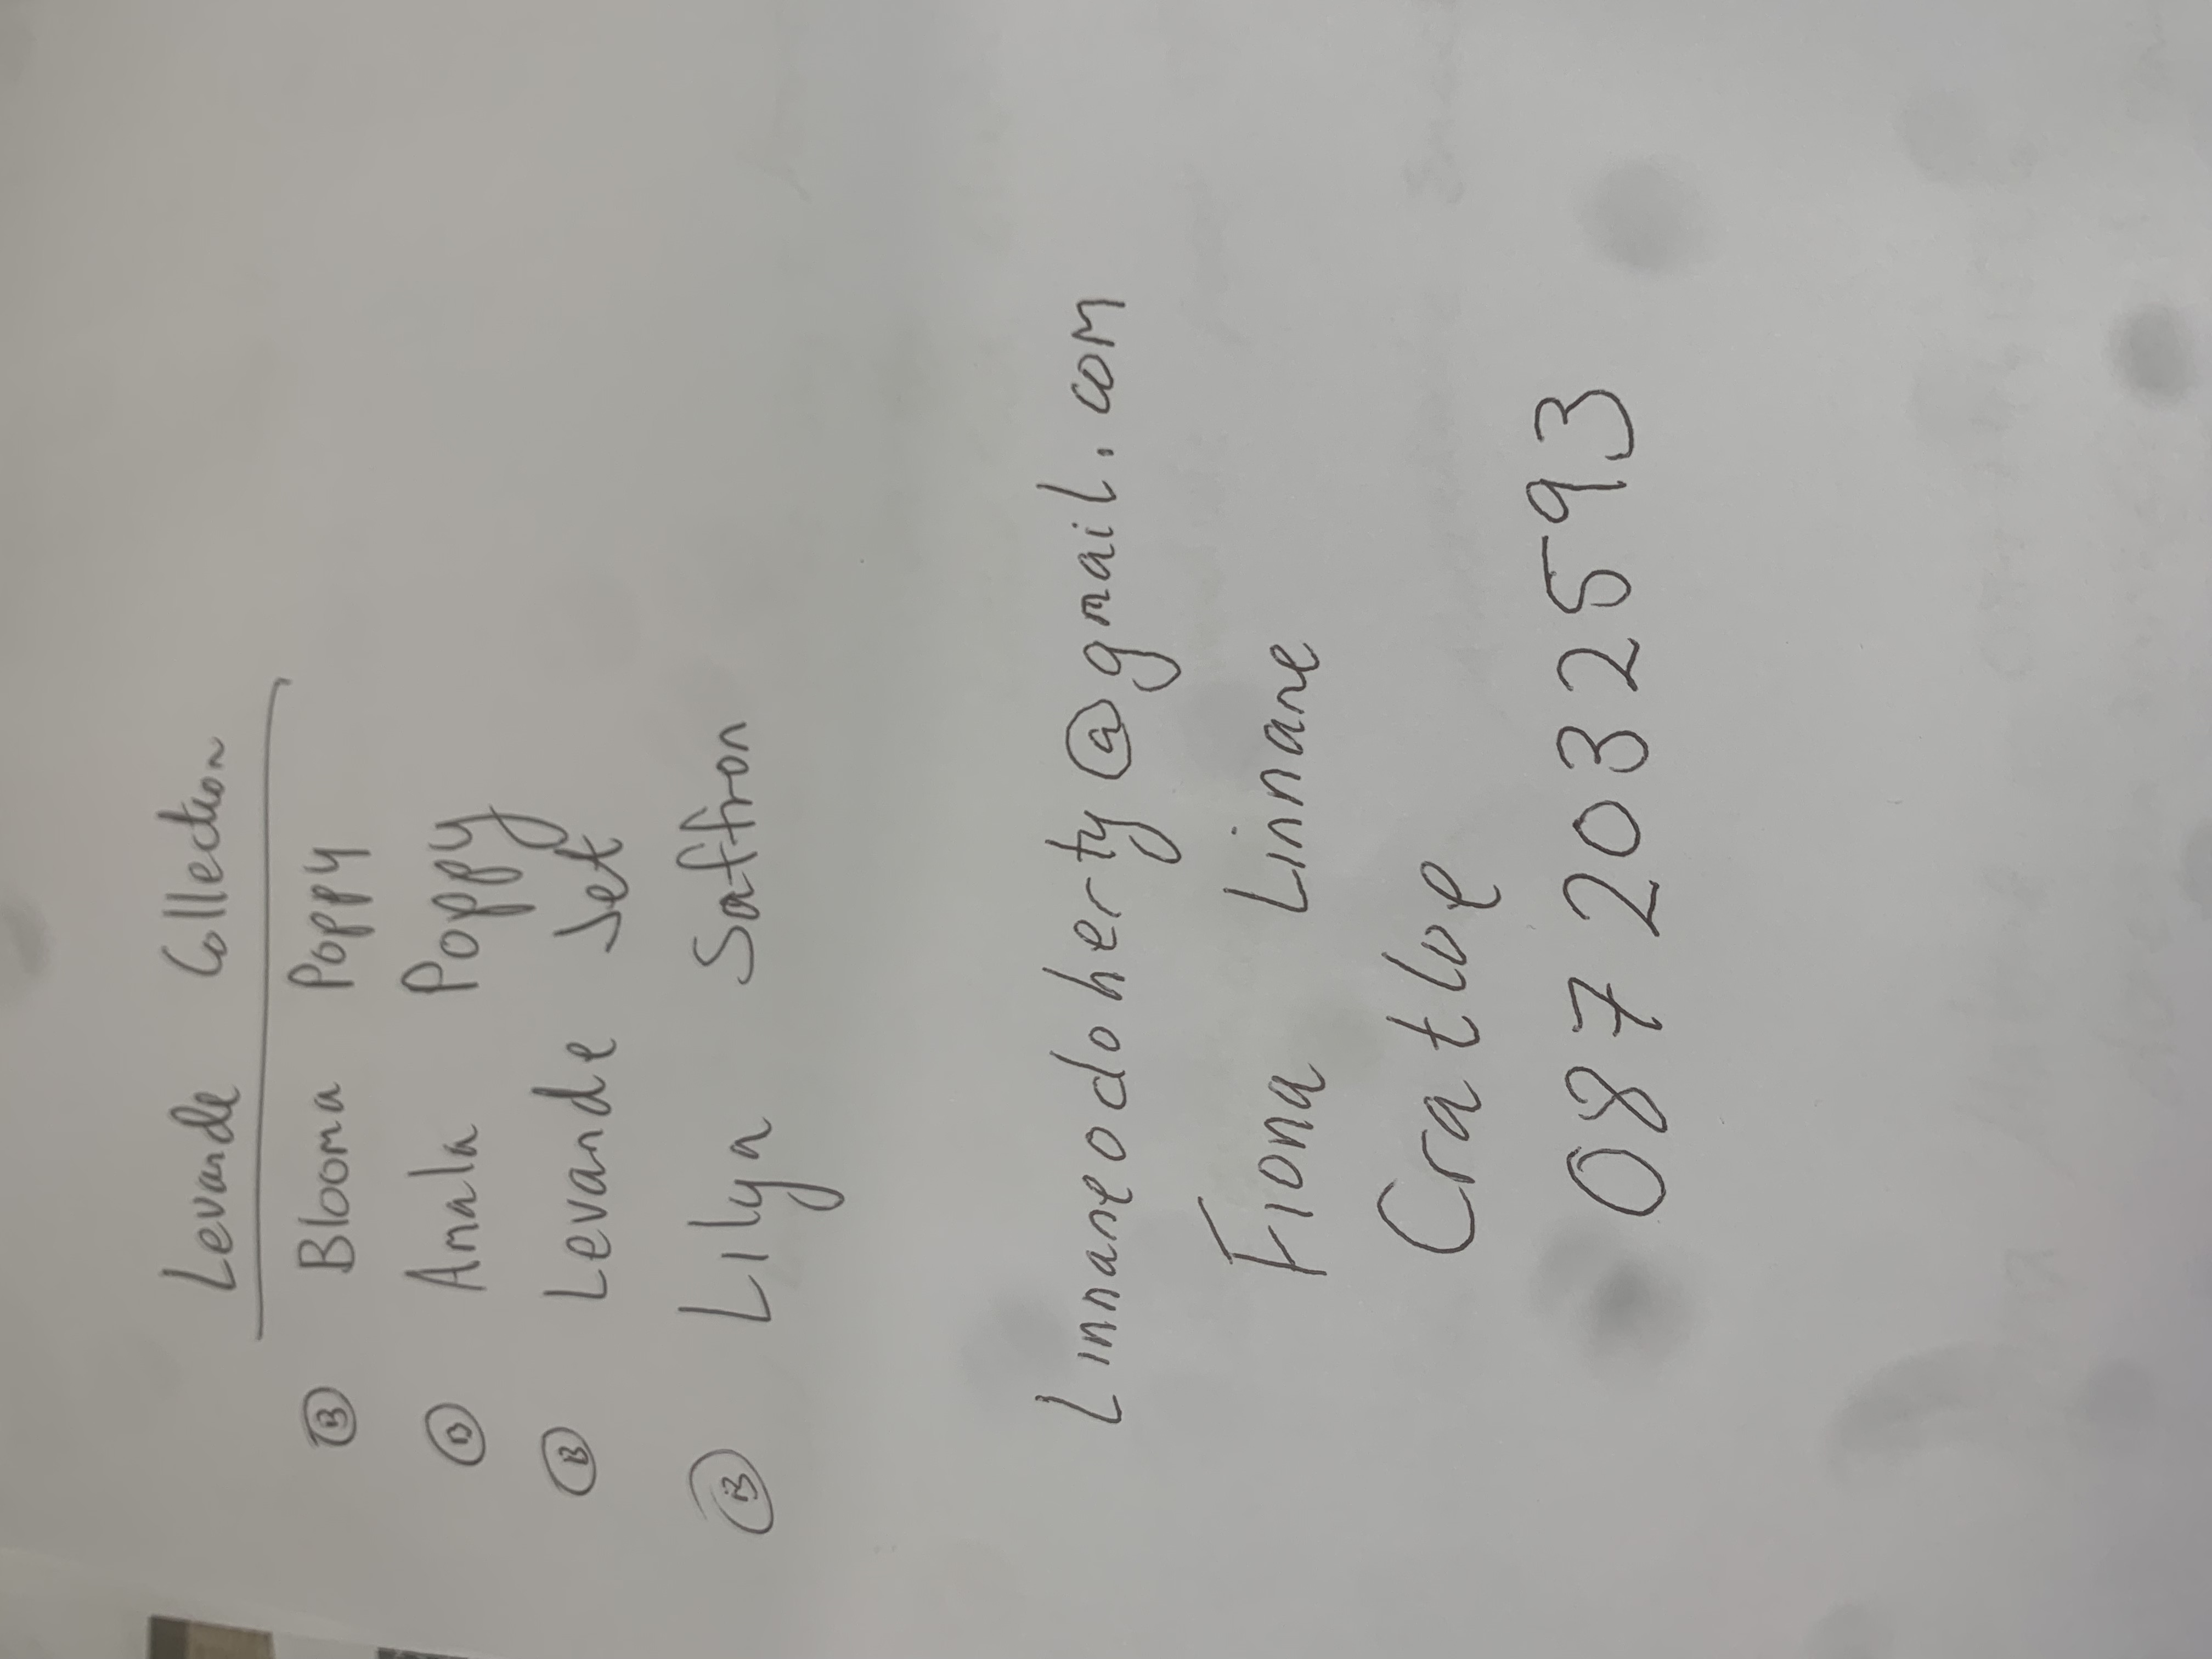 Levande Collection
Ⓑ Blooma Poppy
Ⓑ Amala Poppy
Ⓑ Levande Jet
Ⓑ Lilya Saffron
Linnaneodoherty@gmail.com
Fiona Linnane
Cratloe
087 2032593